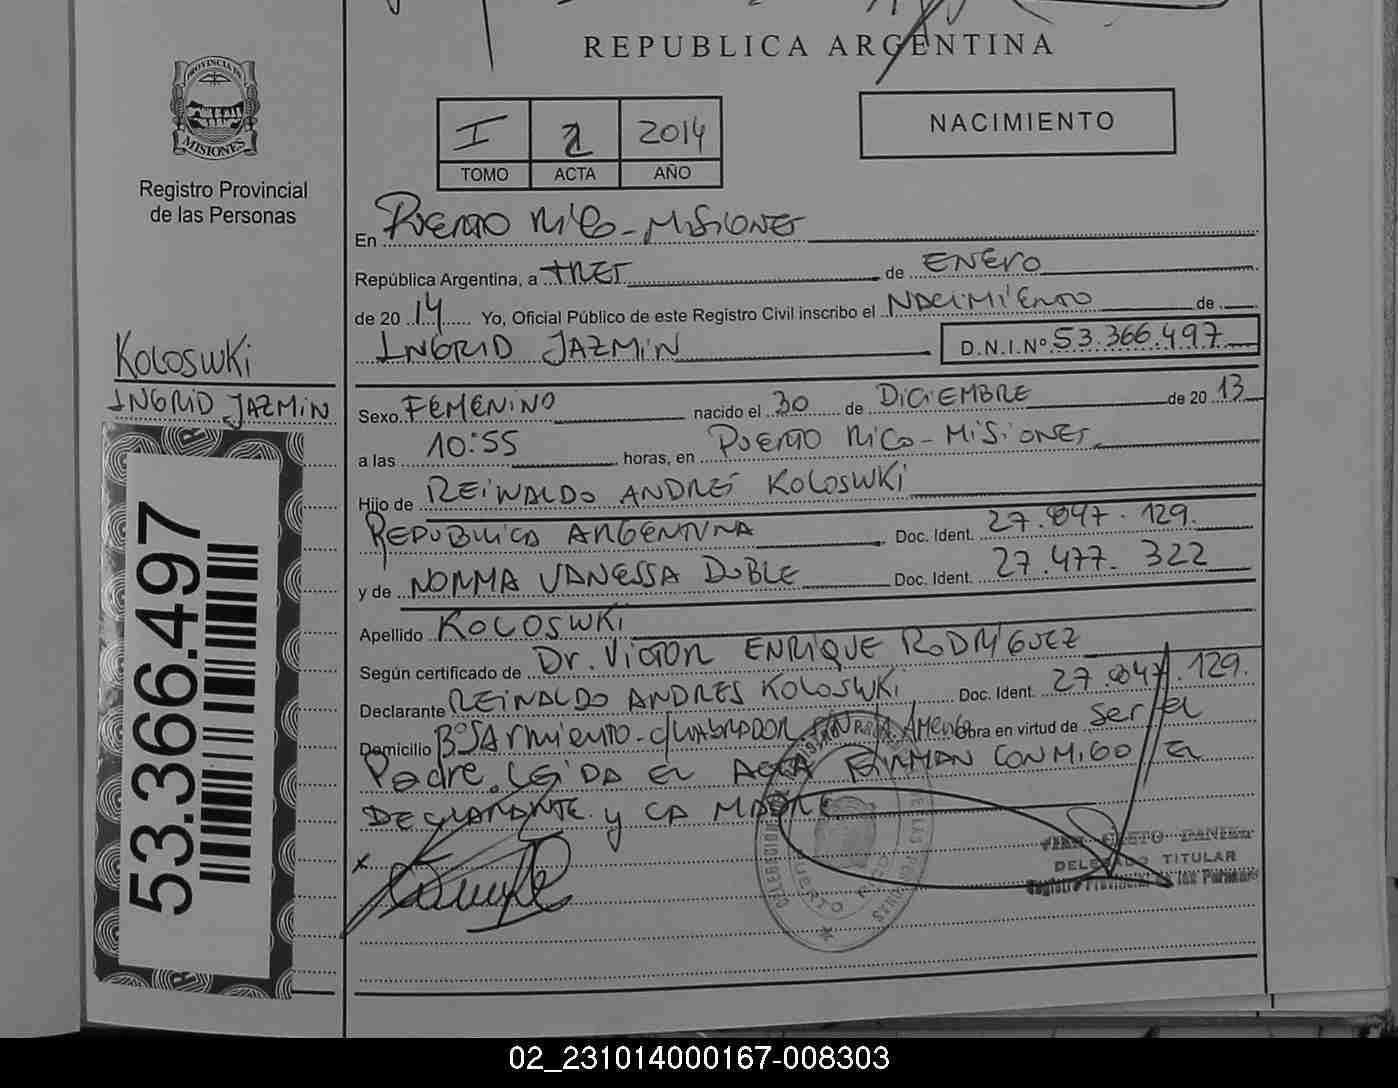 REPUBLICA ARGENTINA
PROVINCIA DE
MISIONES
Registro Provincial
de las Personas
I 2 2014
TOMO ACTA AÑO
NACIMIENTO
En PUERTO RICO - MISIONES
República Argentina, a TRES de ENERO
de 2014 Yo, Oficial Público de este Registro Civil inscribo el NACIMIENTO de
INGRID JAZMIN D.N.I.Nº 53.366.497
KOLOSWKI
INGRID JAZMIN
Sexo FEMENINO nacido el 30 de DICIEMBRE de 2013
a las 10:55 horas, en PUERTO RICO - MISIONES
Hijo de REINALDO ANDRES KOLOSWKI
REPUBLICA ARGENTINA Doc. Ident. 27.847.129.
y de NORMA VANESSA DOBLE Doc. Ident. 27.477.322
Apellido KOLOSWKI
Según certificado de Dr. VICTOR ENRIQUE RODRIGUEZ
Declarante REINALDO ANDRES KOLOSWKI Doc. Ident. 27.847.129.
Domicilio Bº SArmiento - Obra en virtud de ser el
Padre. LEIDA EL ACTA FIRMAN CONMIGO EL
DECLARANTE y LA MADRE
x
DELEGADO TITULAR
Registro Provincial de las Personas
PUERTO RICO
53.366.497
02_231014000167-008303